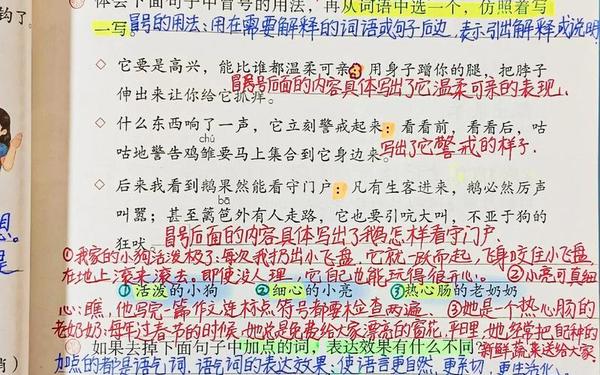 体会下面句子中冒号的用法，再从词语中选一个，仿照着写
一写。冒号的用法：用在需要解释的词语或句子后边，表示引出解释或说明
◇ 它要是高兴，能比谁都温柔可亲：用身子蹭你的腿，把脖子
冒号后面的内容具体写出了它温柔可亲的表现。
伸出来让你给它抓痒。
◇ 什么东西响了一声，它立刻警戒起来：看看前，看看后，咕
chú
咕地警告鸡雏要马上集合到它身边来。写出了它警戒的样子.
◇ 后来我看到鹅果然能看守门户：凡有生客进来，鹅必然厉声
bā
叫嚣；甚至篱笆外有人走路，它也要引吭大叫，不亚于狗的
狂吠。冒号后面的内容具体写出了鹅怎样看守门户.
①我家的小狗活泼极了：每次我扔出小飞盘，它就一跃而起，飞身咬住小飞盘
在地上滚来滚去。即使没人理，它自己也能玩得很开心。②小亮可真细
①活泼的小狗 ②细心的小亮 ③热心肠的老奶奶
心：瞧，他写完一篇作文连标点符号都要检查两遍。③她是一个热心肠的
老奶奶：每年过春节的时候，她总是免费给大家漂亮的窗花，平日里，她经常把自种的
新鲜蔬菜送给大家.
如果去掉下面句子中加点的词，表达效果有什么不同？
加点的都是语气词，语气词的表达效果：使语言更自然，更亲切，更生活化。
钩了。
想。
是